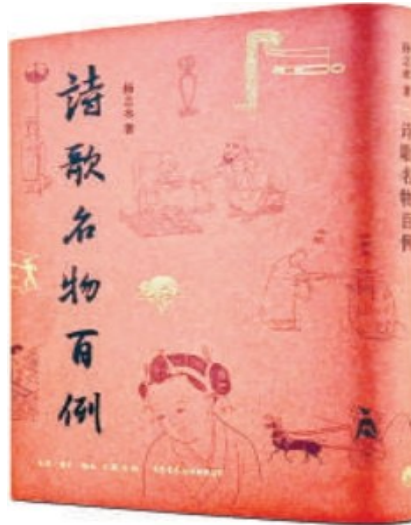 詩歌名物百例
揚之水 著
揚之水 著
詩歌名物百例